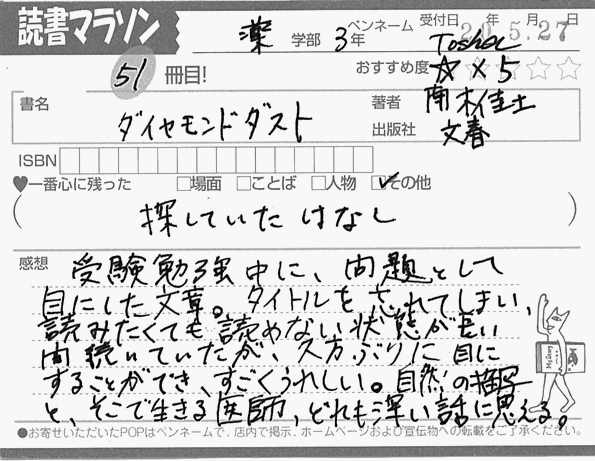 読書マラソン
薬 学部 3年
ペンネーム Toshol
受付日 20年 5月 27日
51冊目!
おすすめ度 ☆×5 ☆☆
書名 ダイヤモンドダスト
著者 南木佳士
出版社 文春
ISBN
♥一番心に残った □場面 □ことば □人物 ☑その他
( 探していたはなし )
感想 受験勉強中に、問題として
目にした文章。タイトルを忘れてしまい、
読みたくても読めない状態が長い
間続いていたが、久方ぶりに目に
することができ、すごくうれしい。自然の描写
と、そこで生きる医師、どれも深い話に思える。
●お寄せいただいたPOPはペンネームで、店内で掲示、ホームページおよび宣伝物への転載をご了承ください。